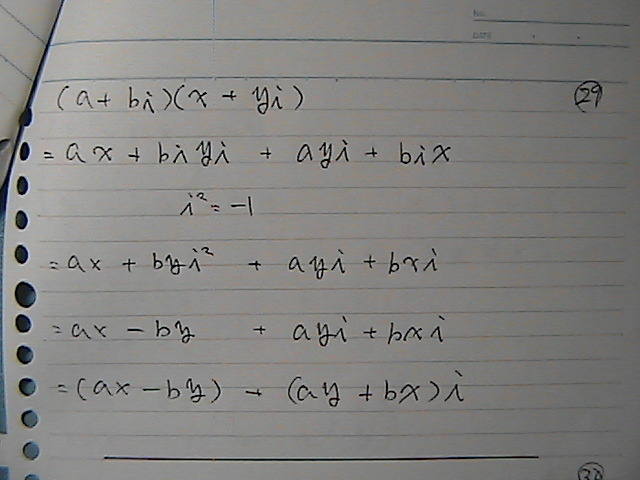 No.
DATE
(a + bi)(x + yi) 29
= ax + biyi + ayi + bix
i² = -1
= ax + byi² + ayi + bxi
= ax - by + ayi + bxi
= (ax - by) + (ay + bx)i